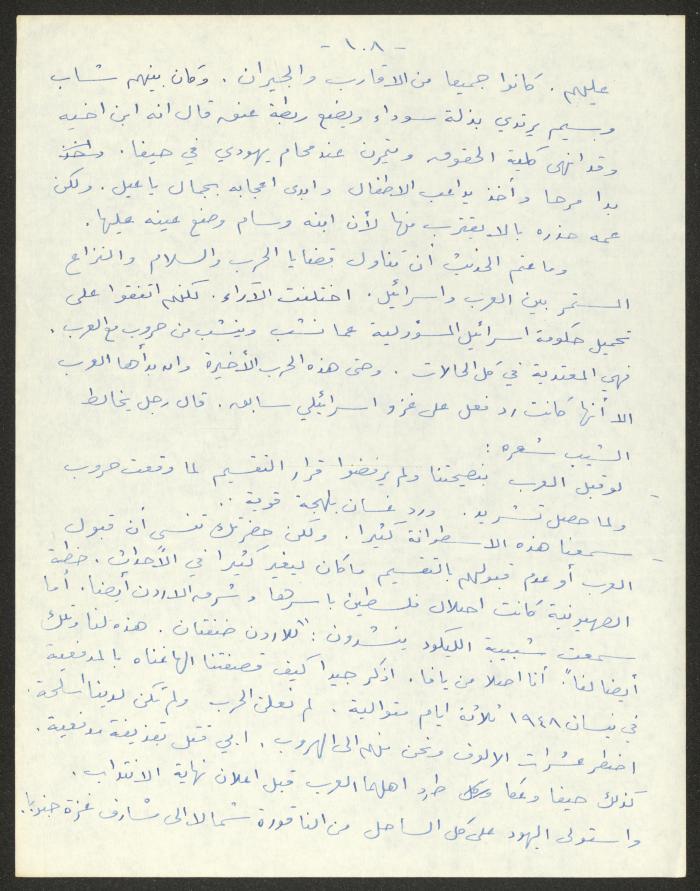 - ١٠٨ -
عليهم . كانوا جميعا من الاقارب والجيران . وكان بينهم شاب
وسيم يرتدي بذلة سوداء ويضع ربطة عنق قال انه ابن اخيه
وقد انهى كلية الحقوق ويتمرن عند محام يهودي في حيفا .
بدا مرحا وأخذ يداعب الاطفال وابدى اعجابه بجمال ياعيل . ولكن
عمه حذره بالا يقترب منها لأن ابنه وسام وضع عينه عليها .
وما عتم الحديث أن تناول قضايا الحرب والسلام والنزاع
المستمر بين العرب واسرائيل . اختلفت الآراء . لكنهم اتفقوا على
تحميل حكومة اسرائيل المسؤولية عما نشب وينشب من حروب مع العرب .
فهي المعتدية في كل الحالات . وحتى هذه الحرب الأخيرة وان بدأها العرب
الا أنها كانت رد فعل على غزو اسرائيلي سابق . قال رجل يخالط
الشيب شعره :
- لو قبل العرب بنصيحتنا ولم يرفضوا قرار التقسيم لما وقعت حروب
ولما حصل تشريد . ورد غسان بلهجة قوية :
- سمعنا هذه الاسطوانة كثيرا . ولكن حضرتك تنسى أن قبول
العرب أو عدم قبولهم بالتقسيم ما كان ليغير كثيرا في الأحداث . خطة
الصهيونية كانت احتلال فلسطين باسرها وشرق الاردن أيضا . أما
سمعت شبيبة الليكود ينشدون : "للاردن ضفتان . هذه لنا وتلك
أيضا لنا" . أنا اصلا من يافا . اذكر جيدا كيف قصفتنا الهاغناه بالمدفعية
في نيسان ١٩٤٨ ثلاثة ايام متوالية . لم نعلن الحرب ولم تكن لدينا اسلحة .
اضطر عشرات الالوف ونحن منهم الى الهروب . ابي قتل بقذيفة مدفعية .
كذلك حيفا وعكا طرد اهلهما العرب قبل اعلان نهاية الانتداب .
واستولى اليهود على كل الساحل من الناقورة شمالا الى مشارف غزة جنوبا .